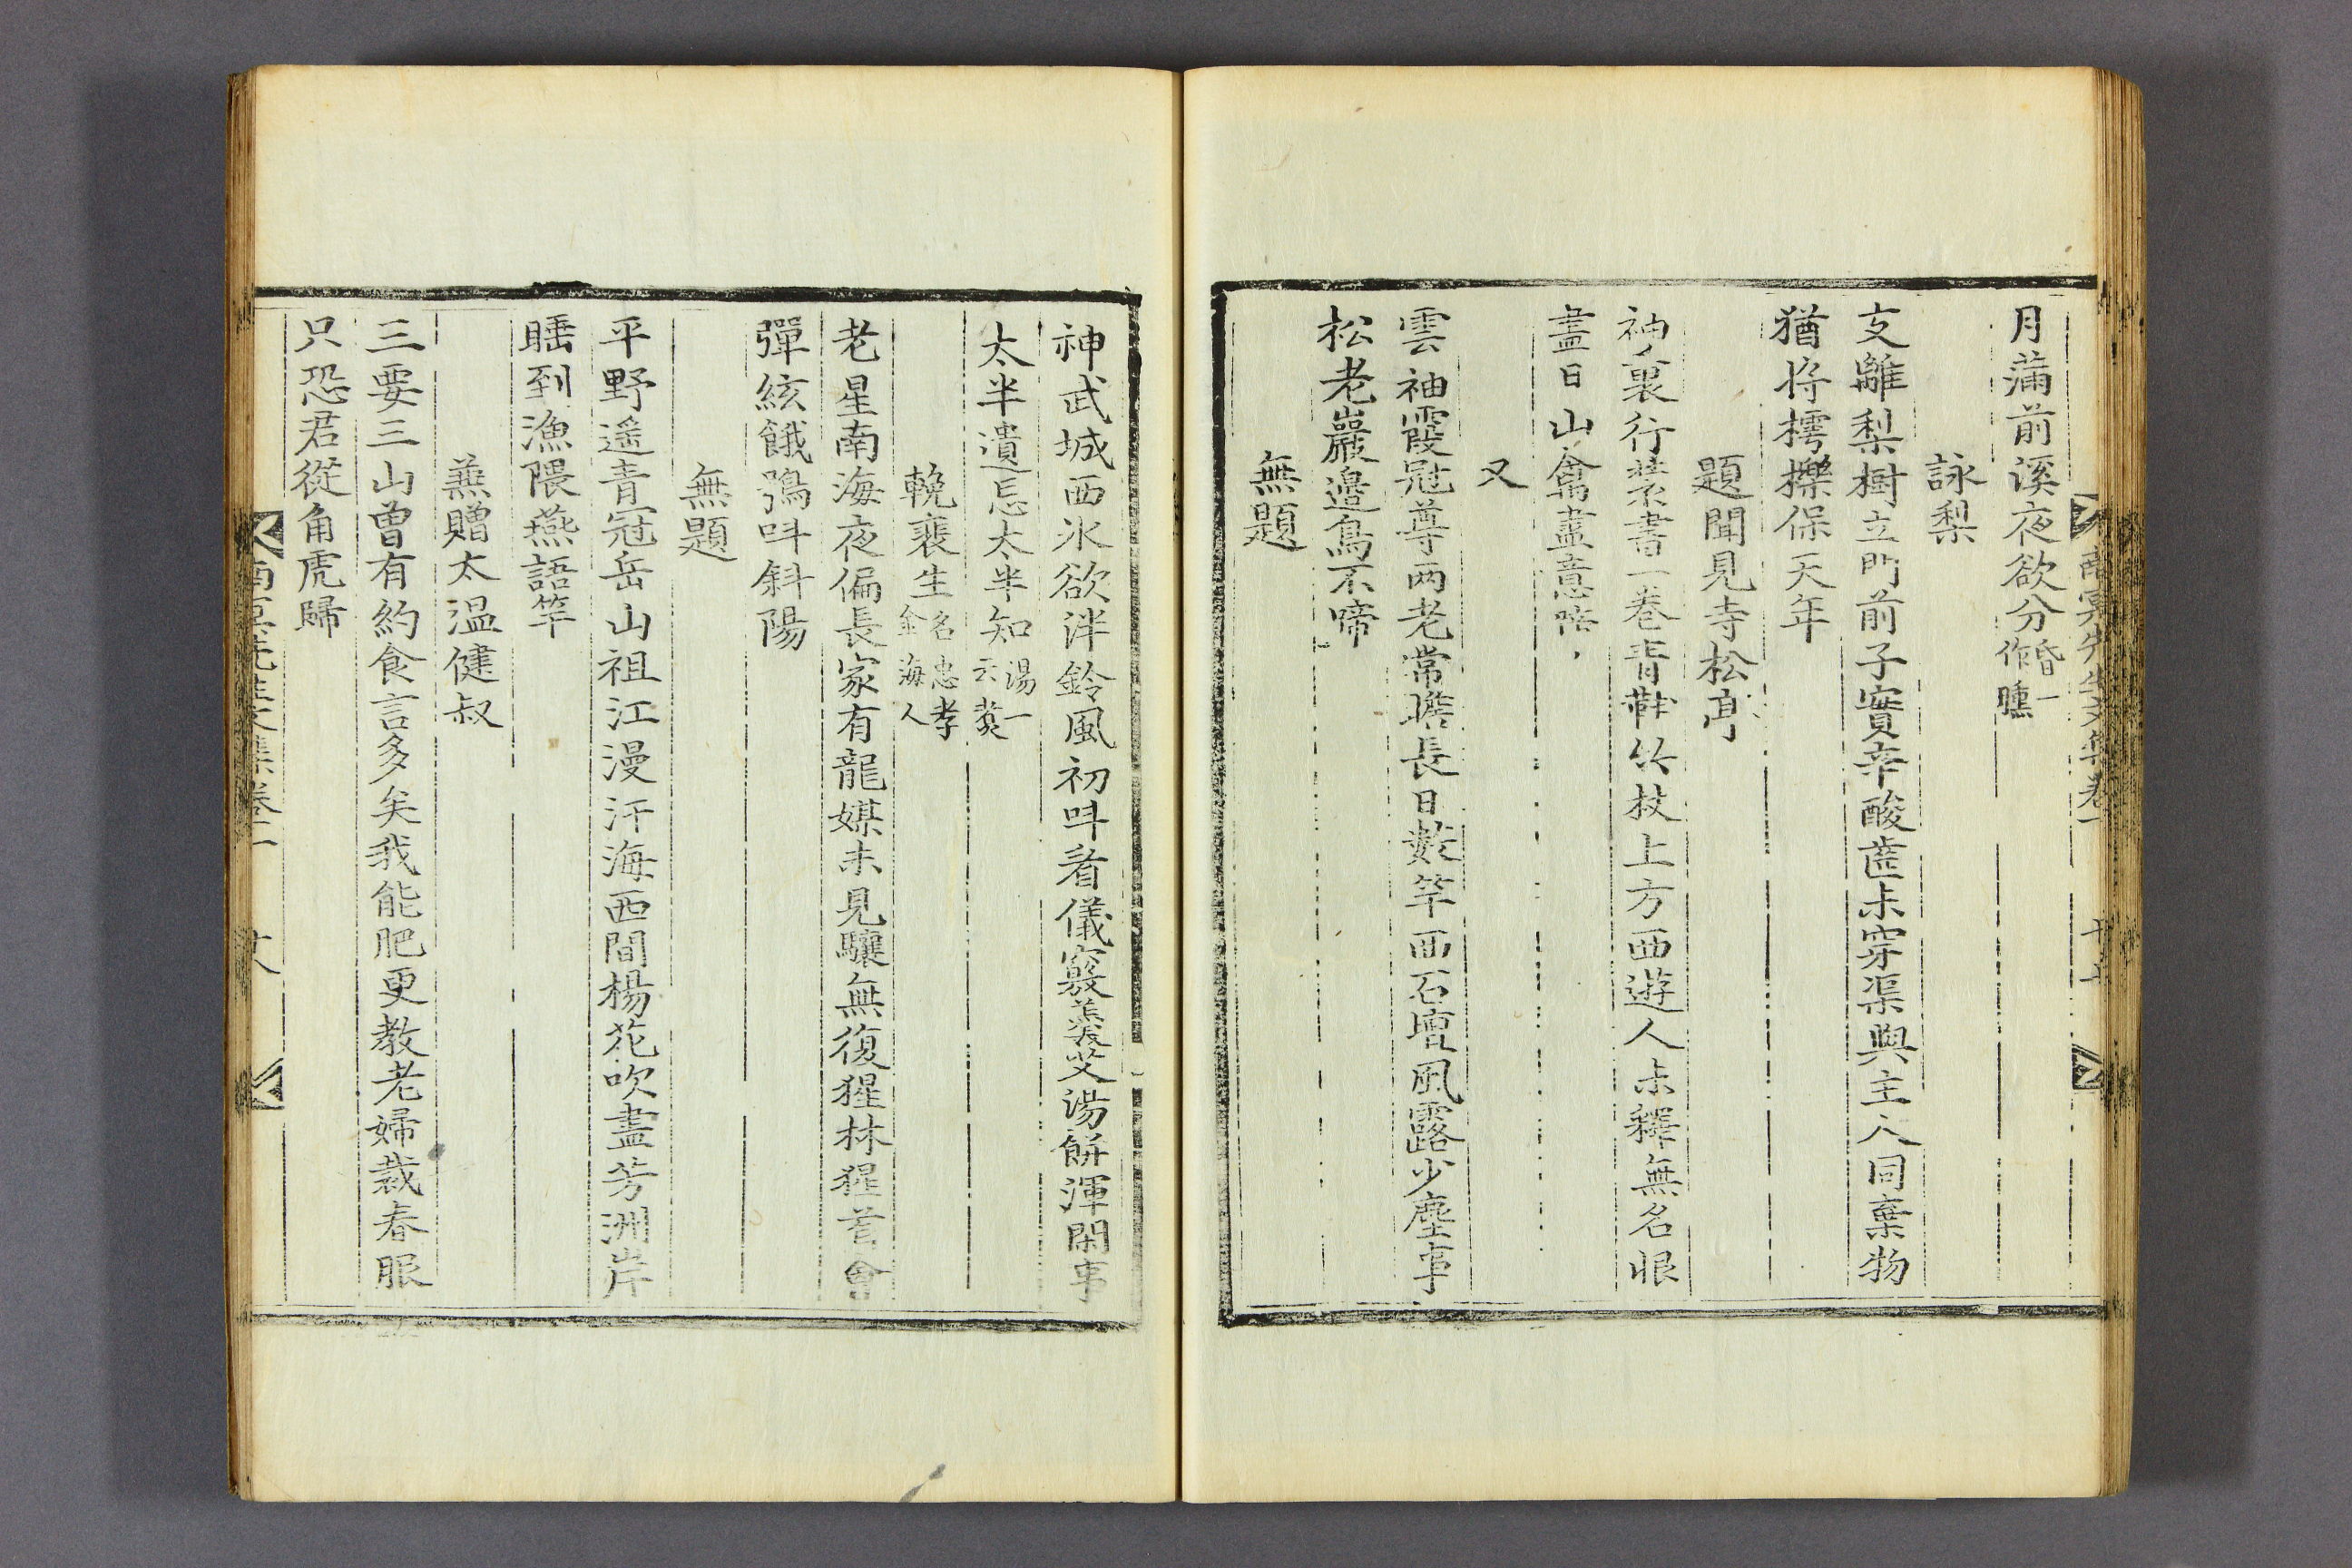 月蒲前溪夜欲分昏一作曛
詠梨
支離梨樹立門前子實辛酸齒未穿渠與主人同棄物
猶將樗櫟保天年
題聞見寺松亭
袖裏行裝書一卷青鞋竹杖上方西遊人未釋無名恨
盡日山禽盡意啼
又
雲袖霞冠尊兩老常瞻長日數竿西石壇風露少塵事
松老巖邊鳥不啼
無題
神武城西氷欲泮鈴風初呌看儀竅羹艾湯餠渾閑事
太半遺忘太半知湯一云羹
輓裵生名忠孝金海人
老星南海夜偏長家有龍媒未見驤無復猩林猩萻會
彈絃餓鴞呌斜陽
無題
平野遥青冠岳山祖江漫汗海西間楊花吹盡芳洲岸
睡到漁隈燕語竿
兼贈太温健叔
三要三山曾有約食言多矣我能肥更教老婦裁春服
只恐君從角虎歸
南冥先生文集卷一